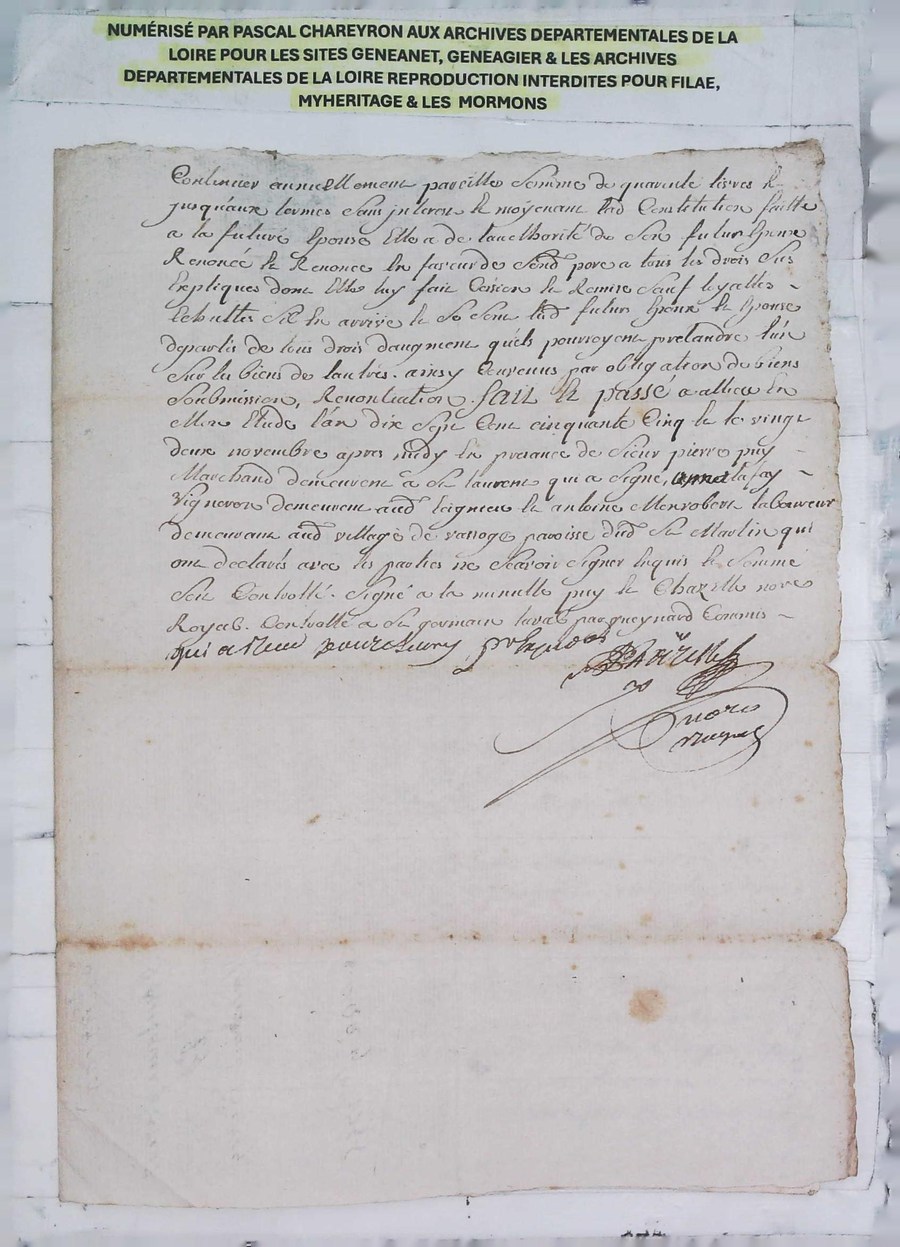 NUMÉRISÉ PAR PASCAL CHAREYRON AUX ARCHIVES DEPARTEMENTALES DE LA
LOIRE POUR LES SITES GENEANET, GENEAGIER & LES ARCHIVES
DEPARTEMENTALES DE LA LOIRE REPRODUCTION INTERDITES POUR FILAE,
MYHERITAGE & LES MORMONS
Continuer annuellement pareille somme de quarente livres et
jusquaux termes sans interest et moyenant lad Constitution faitte
a la future Epouse Elle a de lauthorité de son futur Epoux
Renoncé et Renonce en faveur de sond pere a tous les drois sus
Expliques dont Elle luy fait Cession et Remise sauf loyalles
Echuttes sil en arrive et se sont lesd futurs Epoux et Epouse
departis de tous drois daugment quels pourroyent pretandre lun
sur les biens de lautres. ainsy Convenus par obligation de biens
Soubmission, Renontiation. fait et passé a allieu en
Mon Etude l'an dix sept Cent cinquante Cinq et le vingt
deux novembre apres midy en presance de Sieur pierre puy
Marchand demeurent a St laurent qui a signé, lafay
Vigneron demeurent aud Leignieu et antoine Monrobert laboureur
demeurant aud village de vassoge paroisse dud St Martin qui
ont declarés avec les parties ne Scavoir Signer Enquis et Sommé
Soit Controllé. Signé a la minutte puy et Chazelle nore
Royal. Controllé a St germain laval par gueynard Commis
qui a Receu
Chazelle
nore
royal